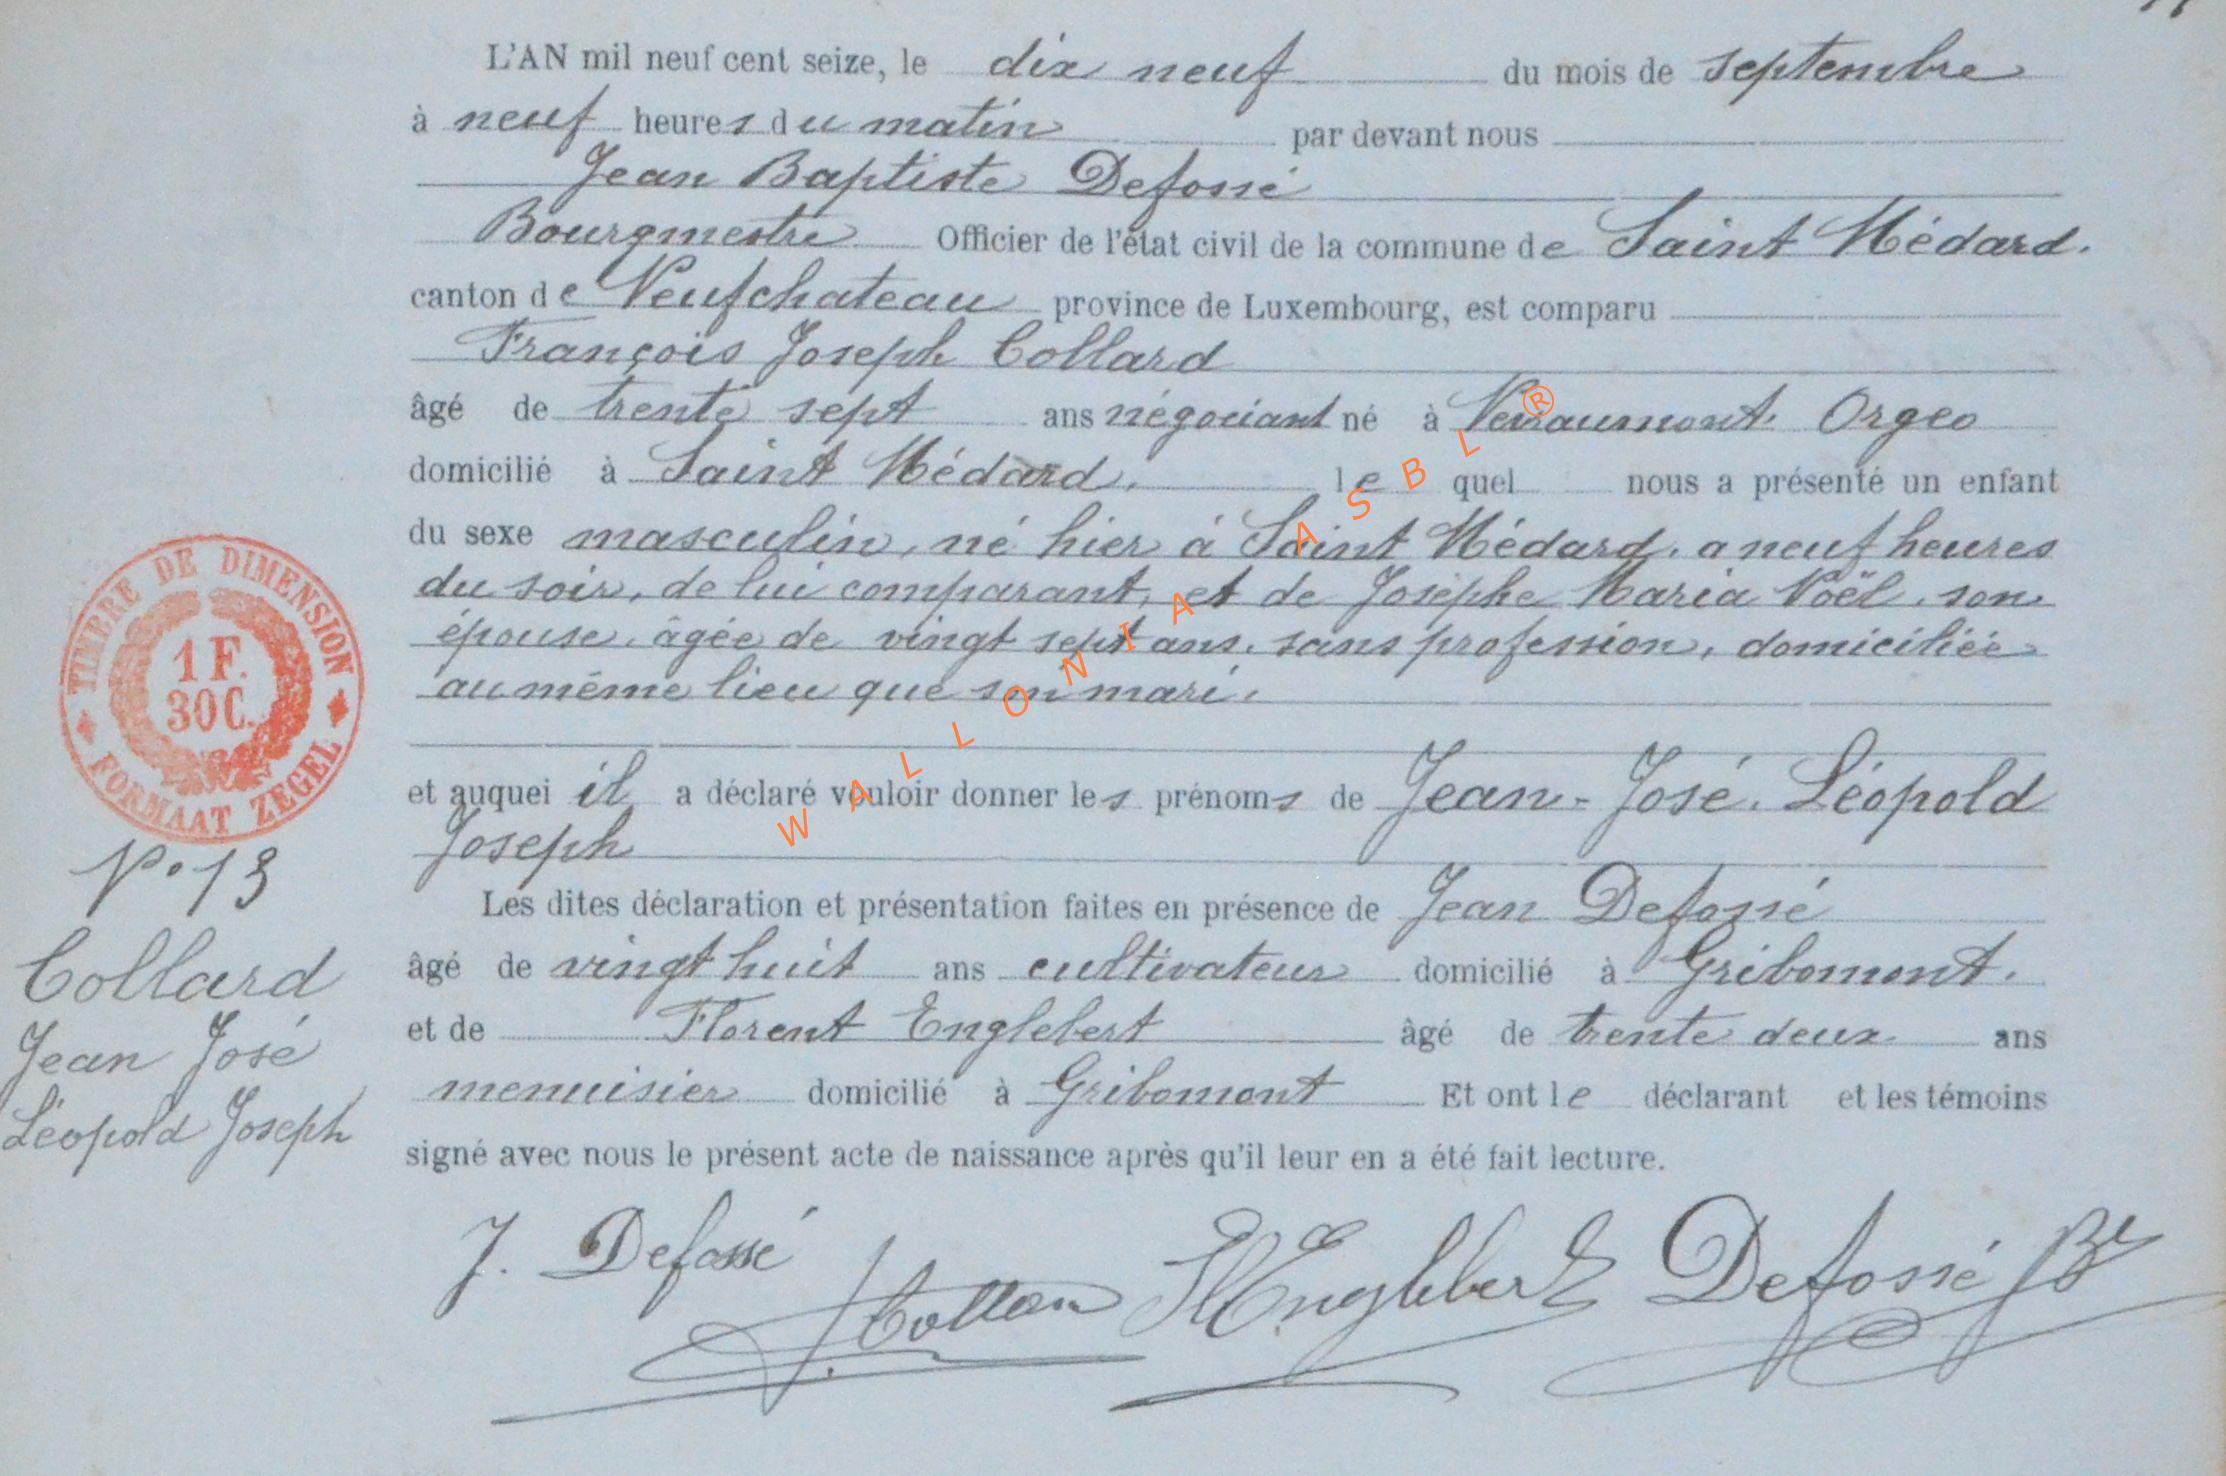 L'AN mil neuf cent seize, le dix neuf du mois de septembre
à neuf heures du matin par devant nous
Jean Baptiste Defossé
Bourgmestre Officier de l'état civil de la commune de Saint Médard.
canton de Neufchateau province de Luxembourg, est comparu
François Joseph Collard
âgé de trente sept ans négociant né à Orgeo
domicilié à Saint Médard. le quel nous a présenté un enfant
du sexe masculin, né hier à Saint Médard. a neuf heures
du soir, de lui comparant, et de Josèphe Maria Noël, son
épouse, âgée de vingt sept ans, sans profession, domiciliée
au même lieu que son mari.
et auquel il a déclaré vouloir donner les prénoms de Jean-José. Léopold
Joseph
Les dites déclaration et présentation faites en présence de Jean Defossé
âgé de vingt huit ans cultivateur domicilié à Gribomont.
et de Florent Englebert âgé de trente deux ans
menuisier domicilié à Gribomont Et ont le déclarant et les témoins
signé avec nous le présent acte de naissance après qu'il leur en a été fait lecture.
J. Defossé
Englebert
Defossé
TIMBRE DE DIMENSION
1 F.
30 C.
FORMAAT ZEGEL
N° 13
Collard
Jean José
Léopold Joseph
WALLONIA ASBL ®